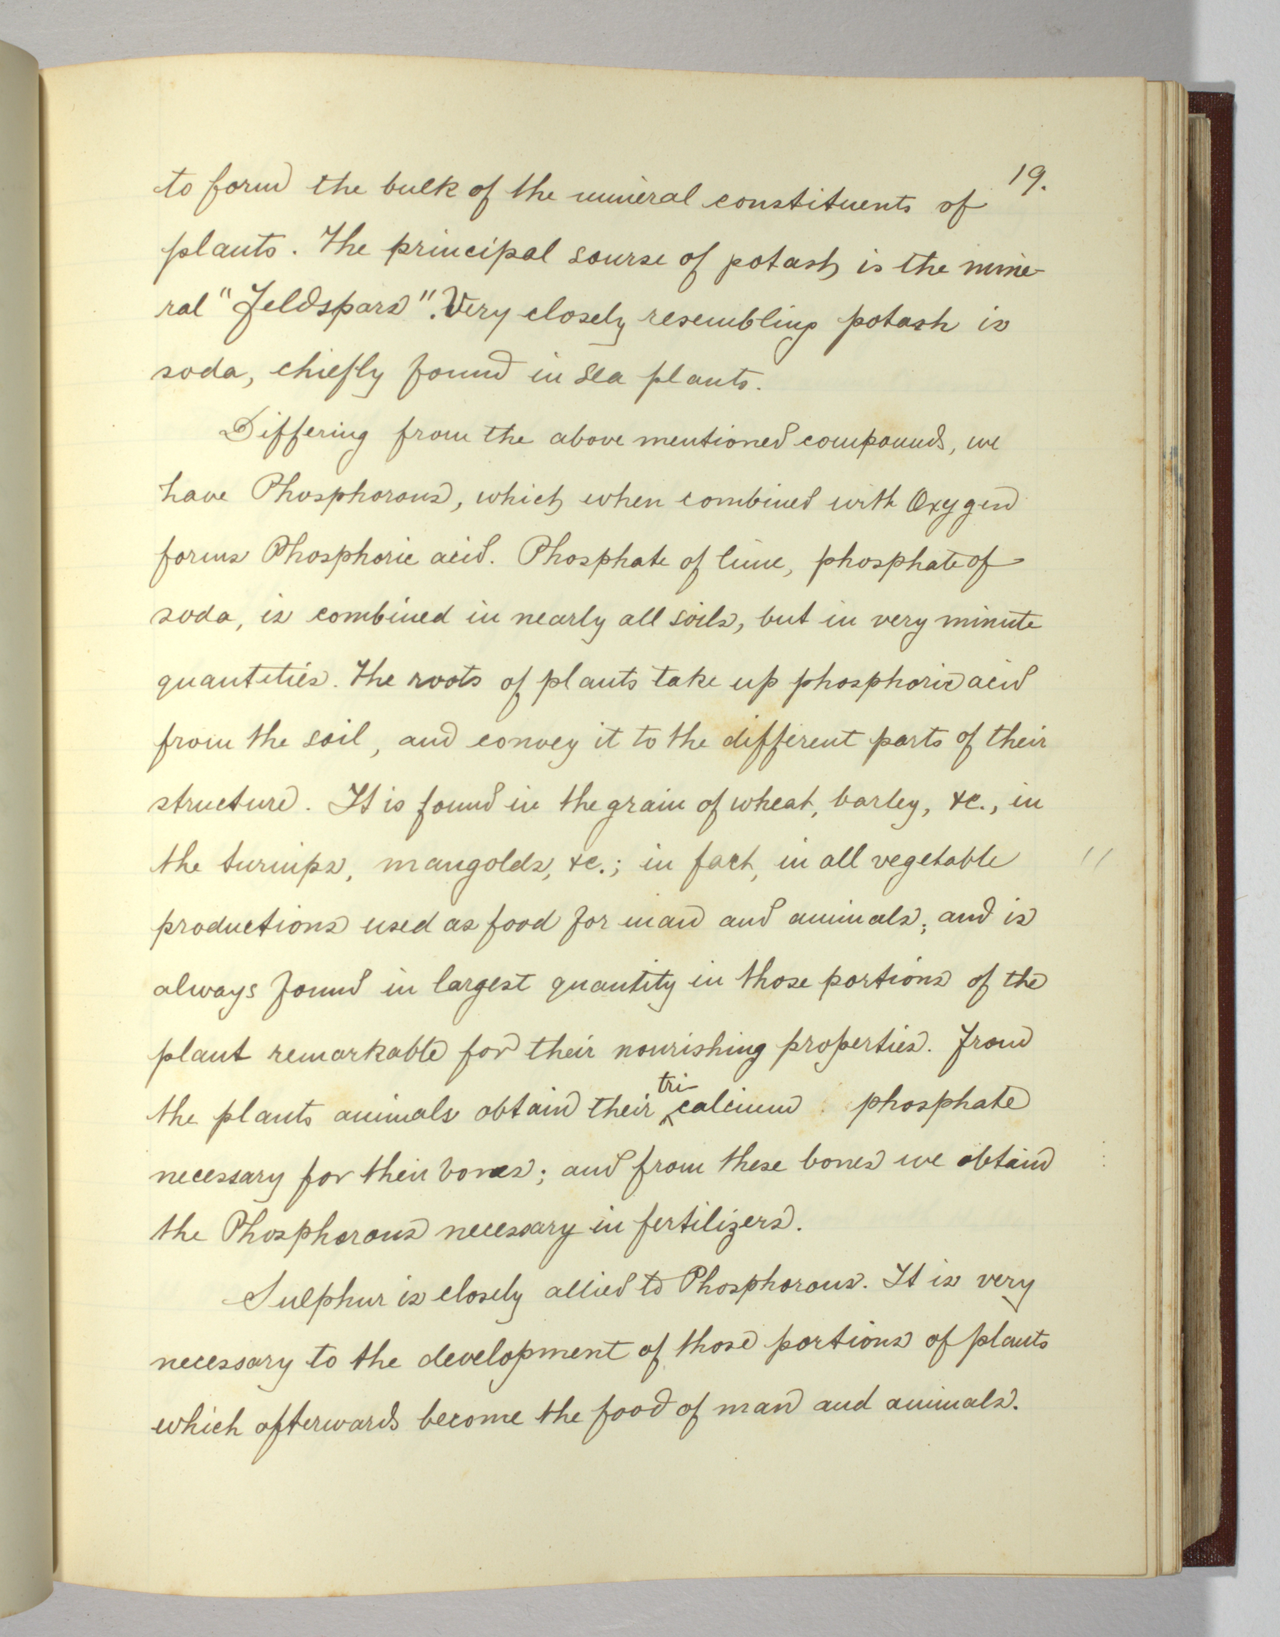 19.
to form the bulk of the mineral constituents of
plants. The principal sourse of potash is the mine-
ral "Feldspars". Very closely resembling potash is
soda, chiefly found in sea plants.
Differing from the above mentioned compounds, we
have Phosphorous, which when combined with Oxygen
forms Phosphoric acid. Phosphate of lime, phosphate of
soda, is combined in nearly all soils, but in very minute
quantities. The roots of plants take up phosphoric acid
from the soil, and convey it to the different parts of their
structure. It is found in the grain of wheat, barley, &c., in
the turnips, mangolds, &c.; in fact, in all vegetable
productions used as food for man and animals; and is
always found in largest quantity in those portions of the
plant remarkable for their nourishing properties. From
the plants animals obtain their tri-calcium phosphate
necessary for their bones; and from these bones we obtain
the Phosphorous necessary in fertilizers.
Sulphur is closely allied to Phosphorous. It is very
necessary to the development of those portions of plants
which afterwards become the food of man and animals.